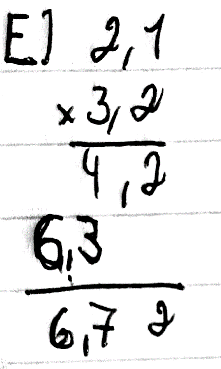 E] 2,1
× 3,2
4,2
6,3
6,7 2